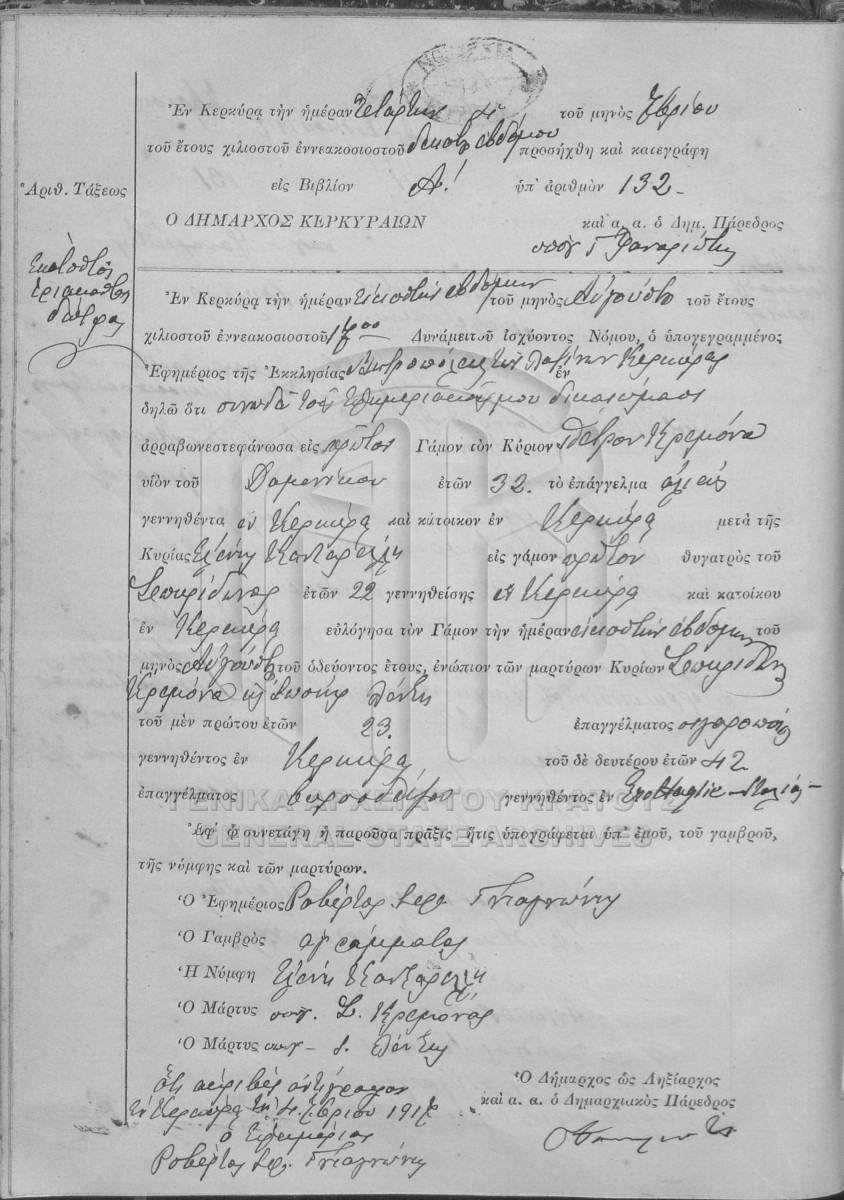 ΝΟΜΑΡΧΙΑ
Ἐν Κερκύρᾳ τὴν ἡμέραν τετάρτην 4 τοῦ μηνὸς 7βρίου
τοῦ ἔτους χιλιοστοῦ ἐννεακοσιοστοῦ δεκάτου ἑβδόμου προσήχθη καὶ κατεγράφη
Ἀριθ. Τάξεως
εἰς Βιβλίον Α! ὑπ' ἀριθμὸν 132-
Ο ΔΗΜΑΡΧΟΣ ΚΕΡΚΥΡΑΙΩΝ καὶ α. α. ὁ Δημ. Πάρεδρος
Ἑκατοστὸς
τριακοστὸς
Ἐν Κερκύρᾳ τὴν ἡμέραν εἰκοστὴν ἑβδόμην τοῦ μηνὸς Αὐγούστου τοῦ ἔτους
χιλιοστοῦ ἐννεακοσιοστοῦ 17ου Δυνάμει τοῦ ἰσχύοντος Νόμου, ὁ ὑπογεγραμμένος
Ἐφημέριος τῆς Ἐκκλησίας Μητροπόλεως τῶν Λατίνων Κερκύρας ἐν
δηλῶ ὅτι συνῳδὰ τοῖς ἐφημεριακοῖς μου δικαιώμασι
ἀρραβωνεστεφάνωσα εἰς πρῶτον Γάμον τὸν Κύριον Πέτρον Κρεμόνα
υἱὸν τοῦ Δομενίκου ἐτῶν 32. τὸ ἐπάγγελμα ἁλιεὺς
γεννηθέντα ἐν Κερκύρᾳ καὶ κάτοικον ἐν Κερκύρᾳ μετὰ τῆς
Κυρίας Ἑλένης Κανταρέλλη εἰς γάμον πρῶτον θυγατρὸς τοῦ
Σπυρίδωνος ἐτῶν 22 γεννηθείσης ἐν Κερκύρᾳ καὶ κατοίκου
ἐν Κερκύρᾳ εὐλόγησα τὸν Γάμον τὴν ἡμέραν εἰκοστὴν ἑβδόμην τοῦ
μηνὸς Αὐγούστου τοῦ ὁδεύοντος ἔτους, ἐνώπιον τῶν μαρτύρων Κυρίων Σπυρίδων
Κρεμόνα
τοῦ μὲν πρώτου ἐτῶν 23. ἐπαγγέλματος σιγαροποιός
γεννηθέντος ἐν Κερκύρᾳ τοῦ δὲ δευτέρου ἐτῶν 42
ἐπαγγέλματος βυρσοδέψου γεννηθέντος ἐν Ἰταλίας-
ΓΕΝΙΚΑ ΑΡΧΕΙΑ ΤΟΥ ΚΡΑΤΟΥΣ
GENERAL STATE ARCHIVES
Ἐφ' ᾧ συνετάγη ἡ παροῦσα πρᾶξις ἥτις ὑπογράφεται ὑπ' ἐμοῦ, τοῦ γαμβροῦ,
τῆς νύμφης καὶ τῶν μαρτύρων.
Ὁ Ἐφημέριος Ροβέρτος
Ὁ Γαμβρὸς ἀγράμματος
Ἡ Νύμφη Ἑλένη Κανταρέλλη
Ὁ Μάρτυς ὑπογ. Σ. Κρεμόνας
Ὁ Μάρτυς ὑπογ-
Ὅτι ἀκριβὲς ἀντίγραφον
Ἐν Κερκύρᾳ τῇ 4 7βρίου 1917
ὁ Ἐφημέριος
Ροβέρτος
Ὁ Δήμαρχος ὡς Ληξίαρχος
καὶ α. α. ὁ Δημαρχιακὸς Πάρεδρος